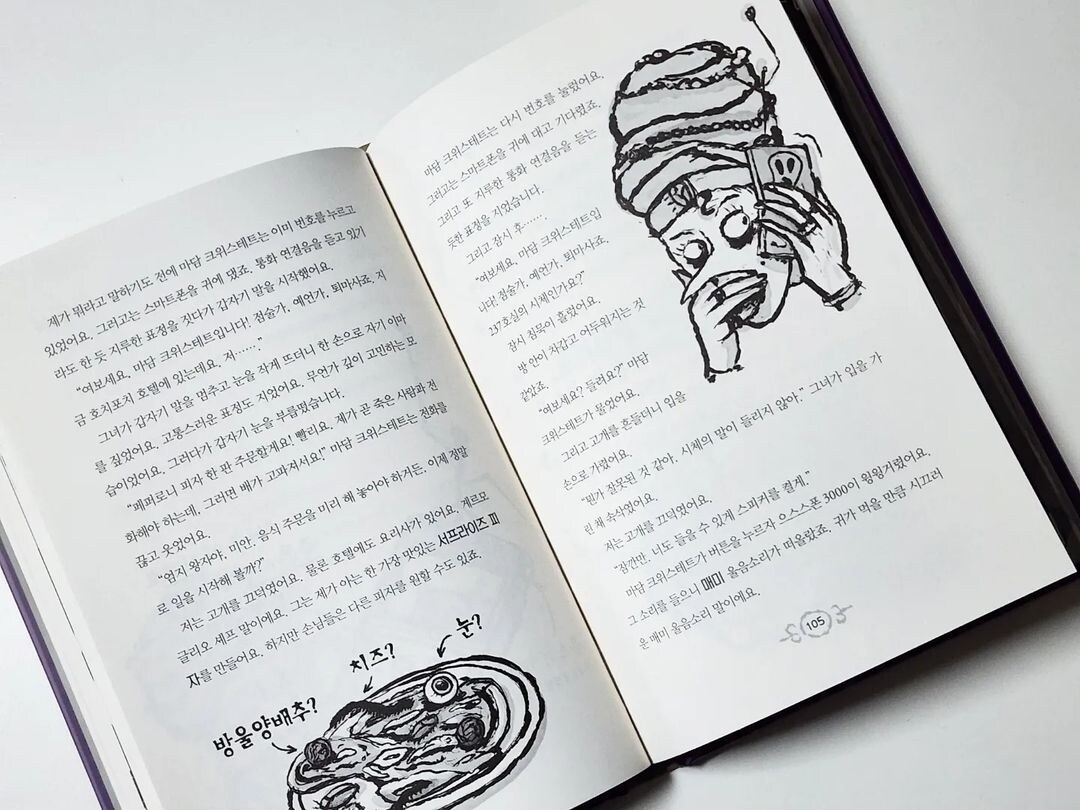 제가 뭐라고 말하기도 전에 마담 크위스테트는 이미 번호를 누르고
있었어요. 그러고는 스마트폰을 귀에 댔죠. 통화 연결음을 듣고 있기
라도 한 듯 지루한 표정을 짓다가 갑자기 말을 시작했어요.
“여보세요. 마담 크위스테트입니다! 점술가, 예언가, 퇴마사죠. 지
금 호치포치 호텔에 있는데요. 저……”
그녀가 갑자기 말을 멈추고 눈을 작게 뜨더니 한 손으로 자기 이마
를 짚었어요. 고통스러운 표정도 지었어요. 무언가 깊이 고민하는 모
습이었어요. 그러다가 갑자기 눈을 부릅떴습니다.
“페퍼로니 피자 한 판 주문할게요! 빨리요. 제가 곧 죽은 사람과 전
화해야 하는데, 그러면 배가 고파져서요!” 마담 크위스테트는 전화를
끊고 웃었어요.
“엄지 왕자야, 미안. 음식 주문을 미리 해 놓아야 하거든. 이제 정말
로 일을 시작해 볼까?”
저는 고개를 끄덕였어요. 물론 호텔에도 요리사가 있어요. 게르모
글리오 셰프 말이에요. 그는 제가 아는 한 가장 맛있는 서프라이즈 피
자를 만들어요. 하지만 손님들은 다른 피자를 원할 수도 있죠.
방울양배추?
치즈?
눈?
마담 크위스테트는 다시 번호를 눌렀어요.
그러고는 스마트폰을 귀에 대고 기다렸죠.
그리고 또 지루한 통화 연결음을 듣는
듯한 표정을 지었습니다.
그리고 잠시 후……
“여보세요. 마담 크위스테트입
니다! 점술가, 예언가, 퇴마사죠.
237호실의 시체인가요?”
잠시 침묵이 흘렀어요.
방 안이 차갑고 어두워지는 것
같았죠.
“여보세요? 들려요?” 마담
크위스테트가 물었어요.
그리고 고개를 흔들더니 입을
손으로 가렸어요.
“뭔가 잘못된 것 같아. 시체의 말이 들리지 않아.” 그녀가 입을 가
린 채 속삭였어요.
저는 고개를 끄덕였어요.
“잠깐만. 너도 들을 수 있게 스피커를 켤게.”
마담 크위스테트가 버튼을 누르자 으스스폰 3000이 윙윙거렸어요.
그 소리를 들으니 매미 울음소리가 떠올랐죠. 귀가 먹을 만큼 시끄러
운 매미 울음소리 말이에요.
105